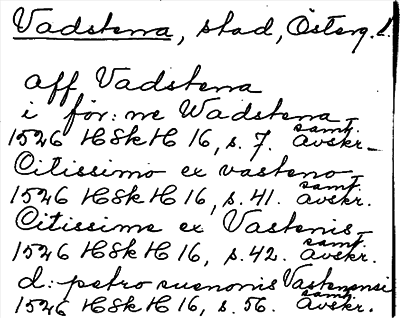 Vadstena, stad, Österg. l.
aff Vadstena
i för: ne Wadstena
1526 HSkH 16, s. 7. samt. avskr.
Citissimo ex vasteno
1526 HSkH 16, s. 41. samt. avskr.
Citissime ex Vastenis
1526 HSkH 16, s. 42. samt. avskr.
d: petro suenonis Vastenensi
1526 HSkH 16, s. 56. samt. avskr.